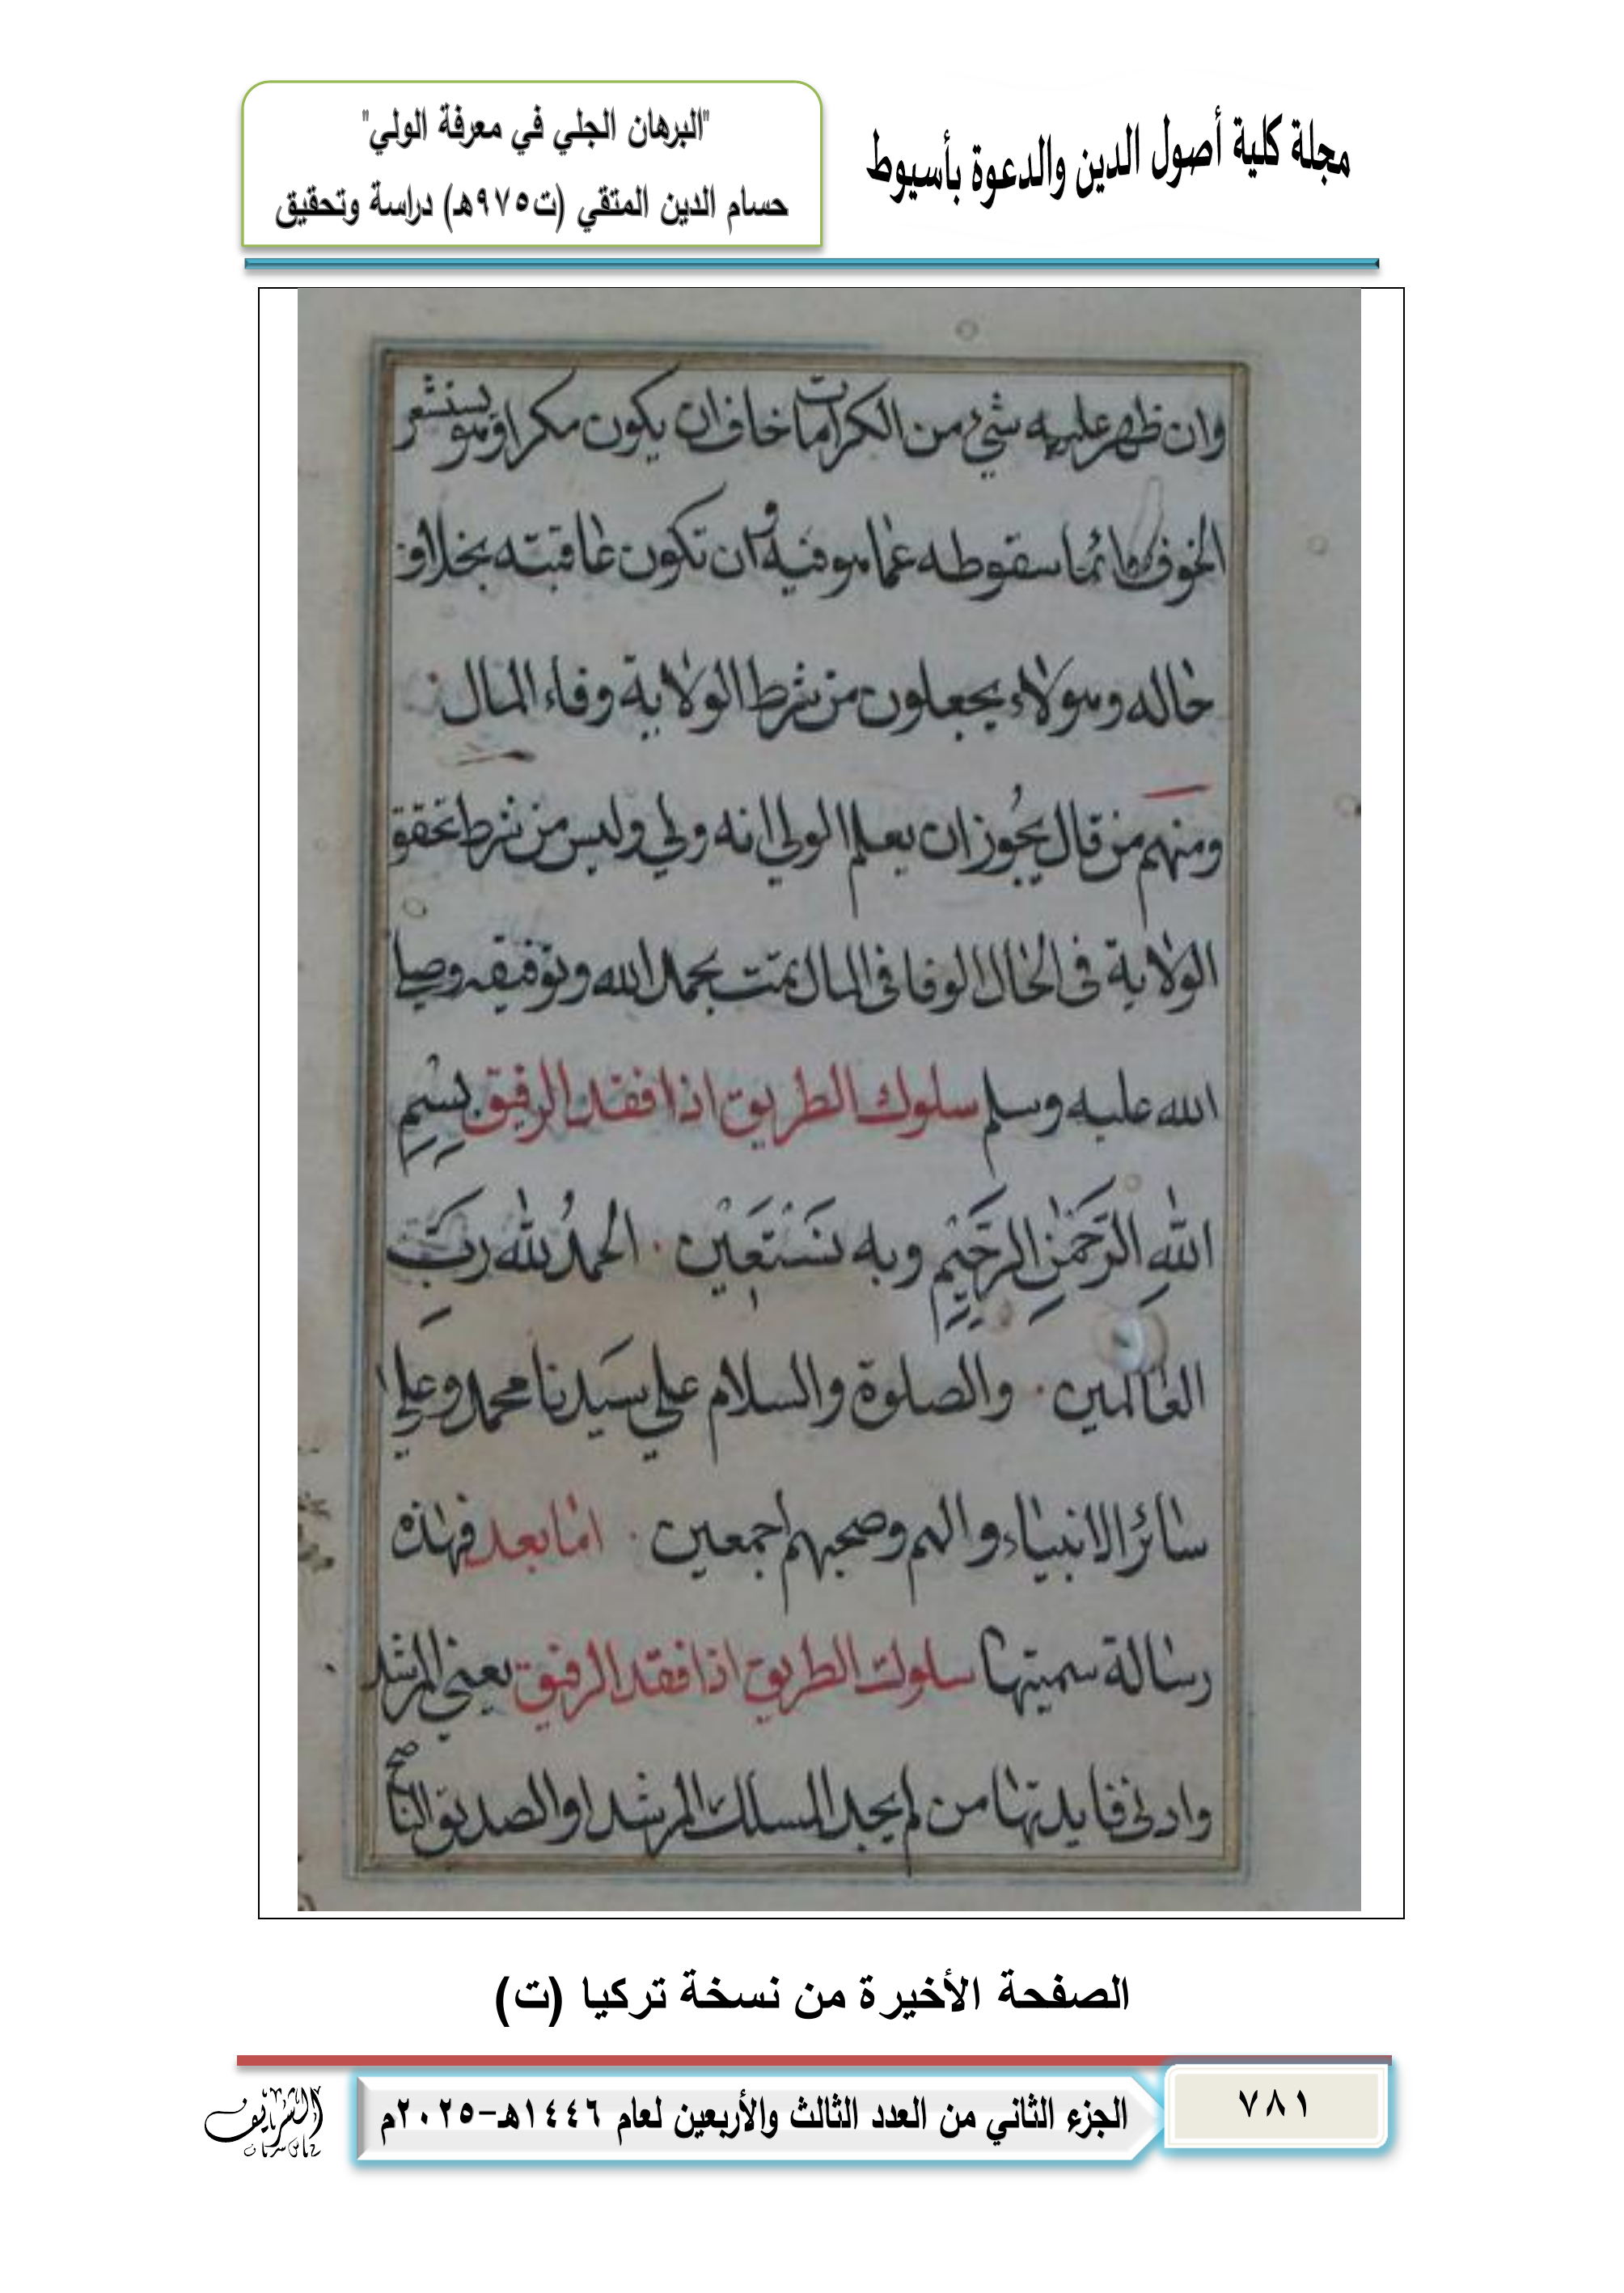 مجلة كلية أصول الدين والدعوة بأسيوط
"البرهان الجلي في معرفة الولي"
حسام الدين المتقي (ت٩٧٥هـ) دراسة وتحقيق
وان ظهر عليه شيء من الكرامات خاف ان يكون مكرا وهو يستشعر
الخوف دائما سقوطه عما هو فيه وان تكون عاقبته بخلاف
حاله وهولاء يجعلون من شرط الولاية وفاء المال
ومنهم من قال يجوز ان يعلم الولي انه ولي وليس من شرط تحقق
الولاية في الحال الوفا في المال تمت بحمد الله وتوفيقه وصلى
الله عليه وسلم سلوك الطريق اذا فقد الرفيق بِسْمِ
اللهِ الرَّحْمٰنِ الرَّحِيْمِ وبه نَسْتَعِيْن . الحمدُ لله رَبِّ
العالمين . والصلوة والسلام على سيدنا محمد وعلى
سائر الانبياء والهم وصحبهم اجمعين . اما بعد فهذه
رسالة سميتها سلوك الطريق اذا فقد الرفيق يعني المرشد
وادنى فايدتها من لم يجد المسلك المرشد او الصديق الناصح
الصفحة الأخيرة من نسخة تركيا (ت)
٧٨١
الجزء الثاني من العدد الثالث والأربعين لعام ١٤٤٦هـ-٢٠٢٥م